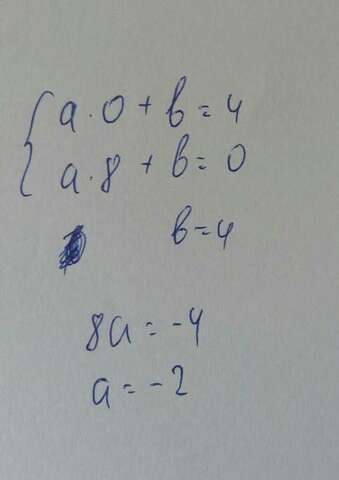 a · 0 + b = 4
a · 8 + b = 0
b = 4
8a = -4
a = -2